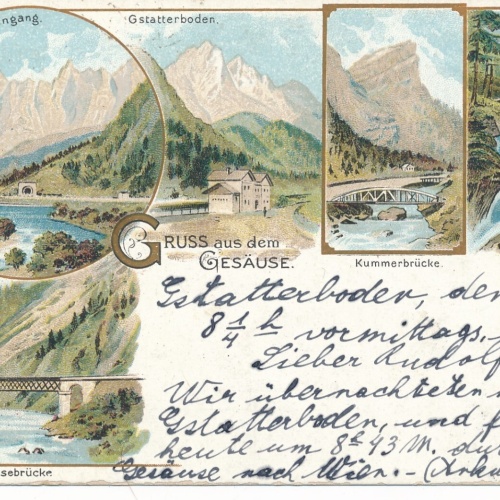 ngang.
Gstatterboden.
GRUSS aus dem
GESÄUSE.
Kummerbrücke.
sebrücke.
Gstatterboden, den
8 1/4 h vormittags.
Lieber Rudolf
Wir übernachteten
Gstatterboden, und f
heute um 8h 43 M. du
Gesäuse nach Wien. – (Anku